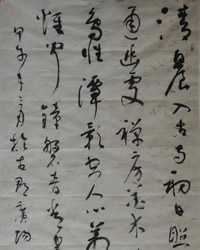 清晨入古寺初日照
通幽處禪房花木
鳥性潭影空人心萬
惟聞鐘磬音
甲午年